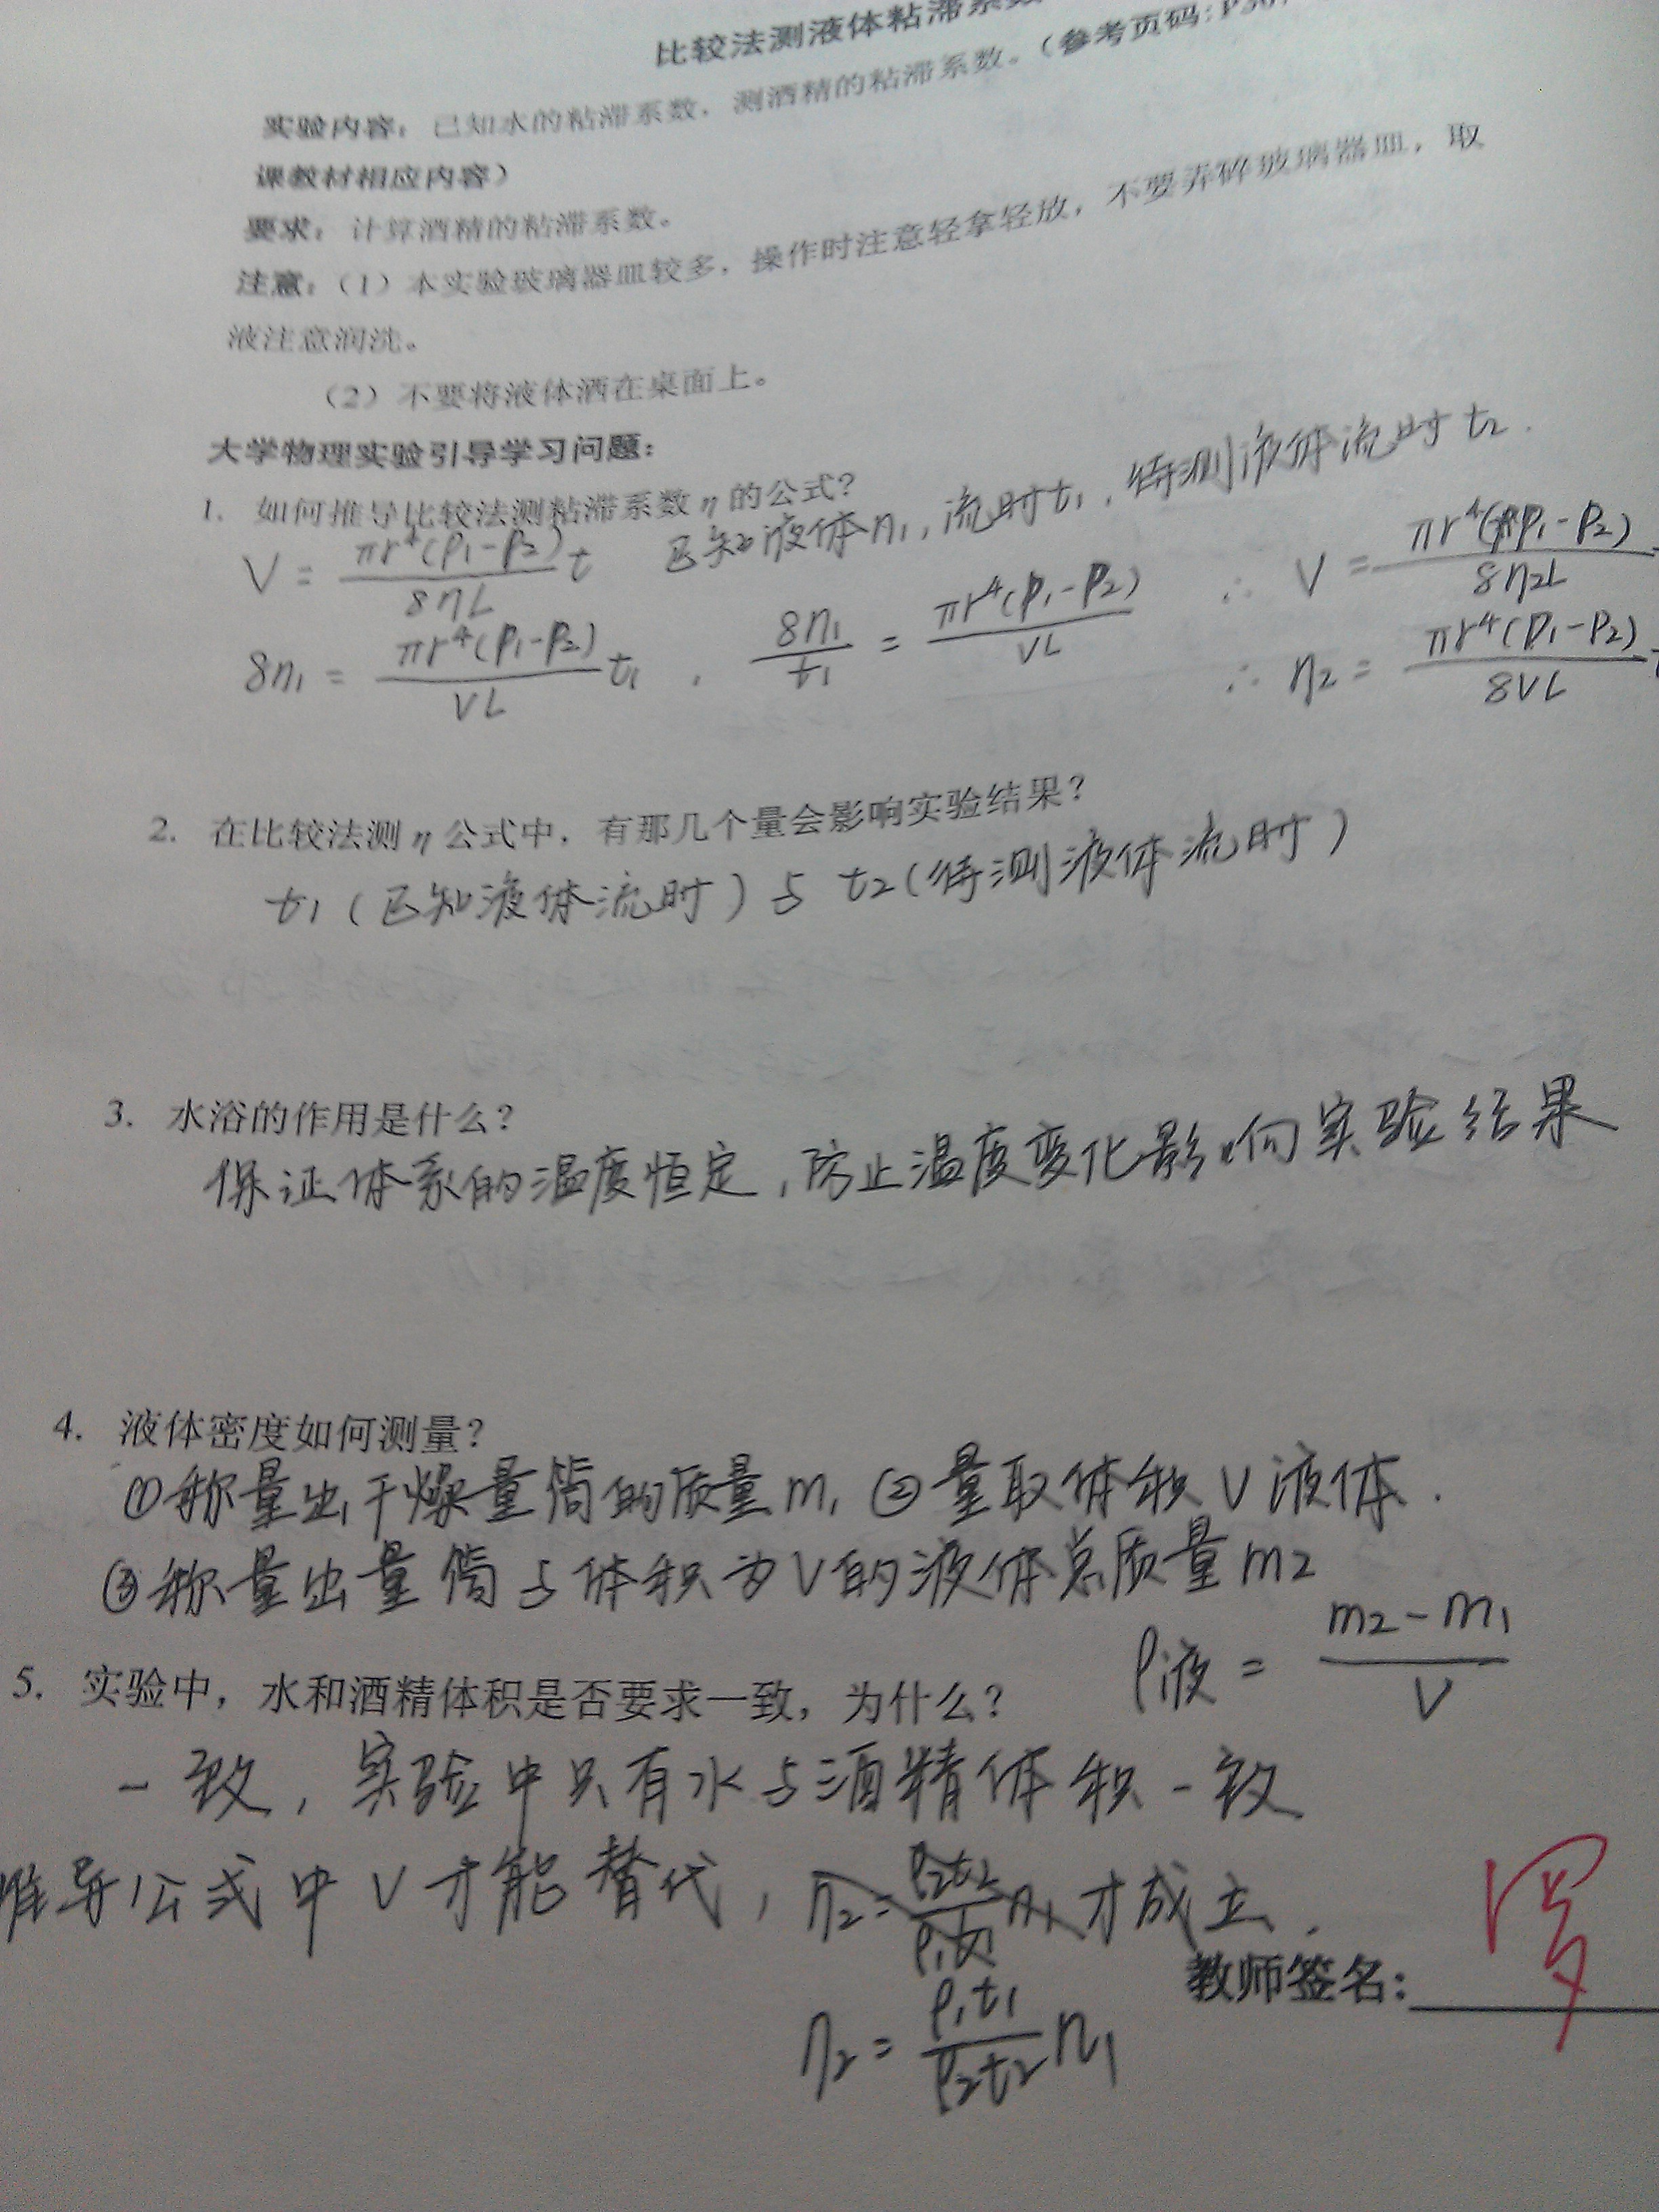 比较法测液体粘滞系数
实验内容：已知水的粘滞系数，测酒精的粘滞系数。（参考页码：P30
课教材相应内容）
要求：计算酒精的粘滞系数。
注意：（1）本实验玻璃器皿较多，操作时注意轻拿轻放，不要弄碎玻璃器皿，取
液注意润洗。
（2）不要将液体洒在桌面上。
大学物理实验引导学习问题：
1. 如何推导比较法测粘滞系数η的公式？
V = πr⁴(P₁-P₂)/8ηL t 已知液体η₁，流时t₁，待测液体流时t₂. ∴ V = πr⁴(P₁-P₂)/8η₂L
8η₁ = πr⁴(P₁-P₂)/VL t₁ , 8η₁/t₁ = πr⁴(P₁-P₂)/VL ∴ η₂ = πr⁴(P₁-P₂)/8VL
2. 在比较法测η公式中，有那几个量会影响实验结果？
t₁（已知液体流时）与 t₂（待测液体流时）
3. 水浴的作用是什么？
保证体系的温度恒定，防止温度变化影响实验结果
4. 液体密度如何测量？
①称量出干燥量筒的质量m₁ ②量取体积V液体.
③称量出量筒与体积为V的液体总质量m₂
ρ液 = m₂-m₁/V
5. 实验中，水和酒精体积是否要求一致，为什么？
一致，实验中只有水与酒精体积一致
推导公式中V才能替代，η₂=ρ₂t₂/ρ₁t₁ η₁才成立.
教师签名：罗
η₂ = ρ₁t₁/ρ₂t₂ η₁